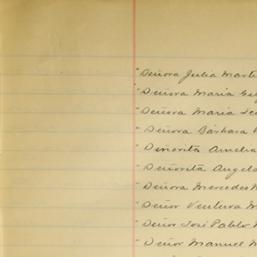 " Señora Julia
" Señora Maria
" Señora Maria
" Señora Barbara
" Señorita Amelia
" Señorita Angela
" Señora Mercedes
" Señor Ventura
" Señor José Pablo
" Señor Manuel